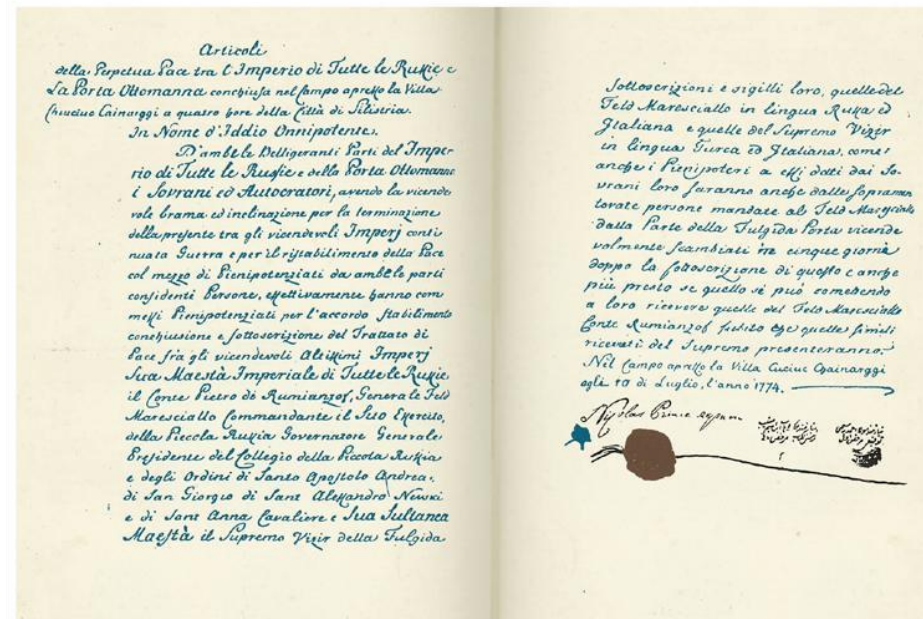 Articoli
della Perpetua Pace tra l'Imperio di Tutte le Russie e
La Porta Ottomanna conchiusa nel Campo apresso la Villa
Chiuciuc Cainarggi a quatro hore della Città di Silistria.
In Nome d'Iddio Onnipotente.
D'ambe le Belligeranti Parti del Impe-
rio di Tutte le Russie e della Porta Ottomanna
i Sovrani ed Autocratori, avendo la vicende
vole brama ed inclinazione per la terminazione
della presente tra gli vicendevoli Imperj conti
nuata Guerra e per il ristabilimento della Pace
col mezzo di Pienipotenziati da ambe le parti
confidenti Persone, effettivamente hanno com
messi Pienipotenziati per l'accordo stabilimento
conchiusione e sottoscrizione del Trattato di
Pace fra gli vicendevoli Altissimi Imperj
Sua Maestà Imperiale di Tutte le Russie
il Conte Pietro de Rumianzof, Generale Feld
Maresciallo Commandante il Suo Esercito,
della Piccola Russia Governatore Generale
Presidente del Collegio della Piccola Russia
e degli Ordini di Santo Apostolo Andrea,
di San Giorgio di Sant Alessandro Newski
e di Sant Anna Cavaliere e Sua Sultanea
Maestà il Supremo Vizir della Fulgida
sottoscrizioni e sigilli loro, quelle del
Feld Maresciallo in lingua Russa ed
Italiana e quelle del Supremo Vizir
in lingua Turca ed Italiana, come
anche i Pienipoteri a essi dati dai So-
vrani loro saranno anche dalle sopramen
tovate persone mandate al Feld Maresciallo
dalla Parte della Fulgida Porta vicende
volmente scambiati in cinque giorni
doppo la sottoscrizione di questo e anche
più presto se quello si può
a loro ricevere quelle del Feld Maresciallo
Conte Rumianzof subito che quelle simili
ricevuti del Supremo presenteranno.
Nel Campo apresso la Villa Cuciuc Chainarggi
agli 10 di Luglio, l'anno 1774.
Nicolas Prince